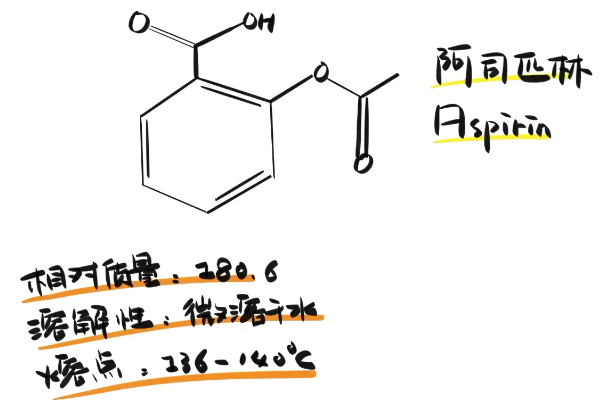 O OH
O
O
阿司匹林
Aspirin
相对质量：180.6
溶解性：微溶于水
熔点：136-140℃